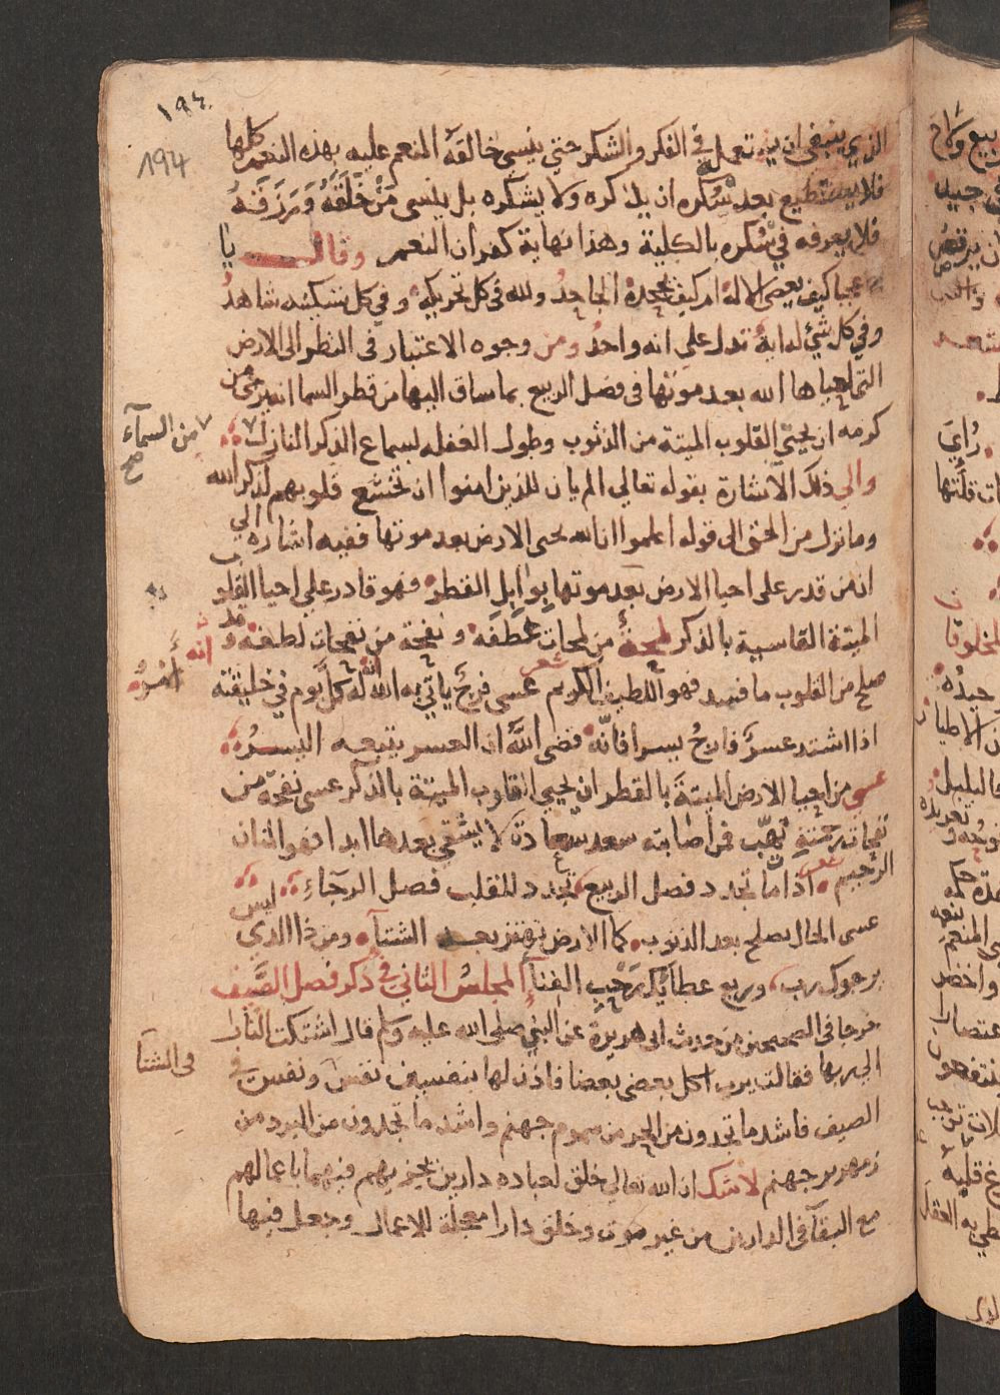 ١٩٤
194
الذي ينبغي ان يستعمله في الفكر والشكر حتي ينسي خالقه المنعم عليه بهذه النعم كلها
فلا يستطيع بعد سكره ان يذكره ولا يشكره بل ينسى مَنْ خَلَقَهُ وَرَزَقَهُ
فلا يعرفه في سُكره بالكلية وهذا نهاية كفران النعم وقال يا
عجبا كيف يعصى الاله ام كيف يجحده الجاحدُ ولله في كل تحريكة وفي كل تسكينه شاهدُ
وفي كل شئ له اية تدل على انه واحدُ ومن وجوه الاعتبار في النظر الى الارض
التي احياها الله بعد موتها في فصل الربيع بما ساق اليها من قطر السما انه يرجى من
كرمه ان يحيي القلوب الميتة من الذنوب وطول الغفله بسماع الذكر النازل
من السمآء
صح
والي ذلك الاشارة بقوله تعالي الم يان للذين امنوا ان تخشع قلوبهم لذكر الله
وما نزل من الحق الى قوله اعلموا ان الله يحى الارض بعد موتها ففيه اشاره الي
ان من قدر على احيا الارض بعد موتها بوابل القطر فهو قادر علي احيا القلوب
الميتة القاسية بالذكر لمحة من لمحات عطفه ونفحة من نفحات لطفه وقد
صلح من القلوب ما فسد فهو اللطيف الكريم شعر عسى فرج ياتي به الله انه له كل يوم في خليقته
انه
أَمْرُ
اذا اشتد عسرٌ فارجُ يسرا فانّه قضى اللّٰه ان العسر يتبعه اليسرُ
عسي من احيا الارض الميتة بالقطر ان يحيي القلوب الميتة بالذكر عسى نفحة من
نفحات رحمته تهب فمن اصابته سعد سعادة لا يشقي بعدها ابدا فهو المنان
الرحيم شعر اذا ما تجدد فصل الربيع تجدد للقلب فصل الرجاء
عسى الحال يصلح بعد الذنوب كما الارض تهتز بعد الشتآء ومن ذا الذي ليس
يرجوك رب وربع عطائك رَحْبِ الفنآ المجلسُ الثاني في ذكر فصل الصَّيف
خرجا في الصحيحين من حديث ابى هريرة عن النبي صلى الله عليه وسلم قال اشتكت النار
الى ربها فقالت يرب اكل بعضى بعضا فاذن لها بنفسين نفس ونفس في
فى الشتآ
الصيف فاشد ما تجدون من الحر من سموم جهنم واشد ما تجدون من البرد من
زمهرير جهنم لا شك ان الله تعالي خلق لعباده دارين يجزيهم فيهما باعمالهم
مع البقآ في الدارين من غير موت وخلق دارا معجلة للاعمال وجعل فيها